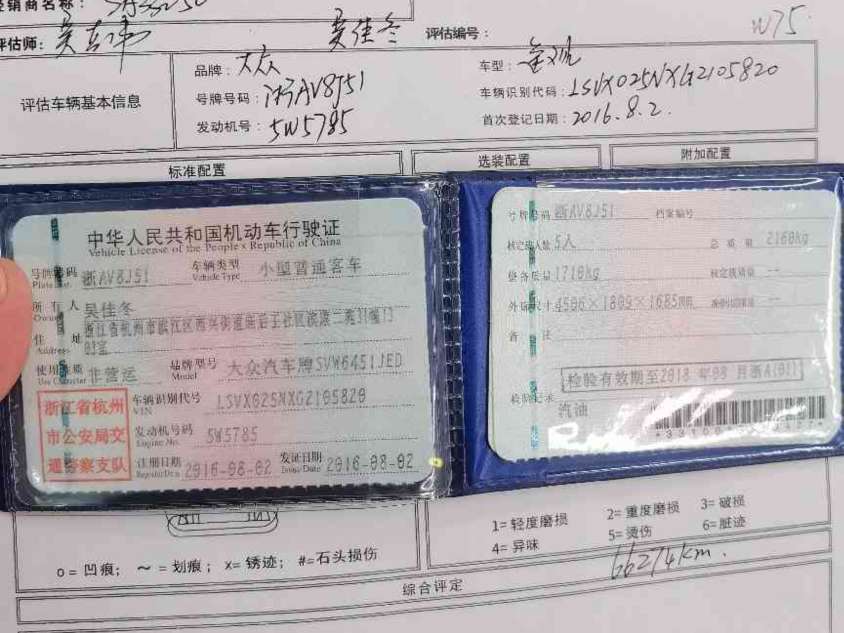 经销商名称：
评估师：吴吉伟 吴佳冬 评估编号： W75
评估车辆基本信息
品牌：大众 车型：
号牌号码：浙AV8J51 车辆识别代码：LSVX025NXG2105820
发动机号：5W5785 首次登记日期：2016.8.2.
标准配置 选装配置 附加配置
中华人民共和国机动车行驶证
Vehicle License of the People's Republic of China
号牌号码 浙AV8J51 车辆类型 小型普通客车
Plate No. Vehicle Type
所有人 吴佳冬
Owner
住址 浙江省杭州市滨江区西兴街道
Address 03室
使用性质 非营运 品牌型号 大众汽车牌SVW6451JED
Use Character Model
浙江省杭州市公安局交通警察支队
车辆识别代号 LSVX025NXG2105820
VIN
发动机号码 5W5785
Engine No.
注册日期 2016-08-02 发证日期 2016-08-02
Register Date Issue Date
号牌号码 浙AV8J51 档案编号
核定载人数 5人 总质量 2160kg
整备质量 1710kg 核定载质量 --
外廓尺寸 4506×1809×1685mm 准牵引总质量 --
备注
检验有效期至2018年08月浙A(01)
检验记录
汽油
1=轻度磨损 2=重度磨损 3=破损
4=异味 5=烫伤 6=脏迹
o=凹痕； ～=划痕； x=锈迹； #=石头损伤
66274km.
综合评定